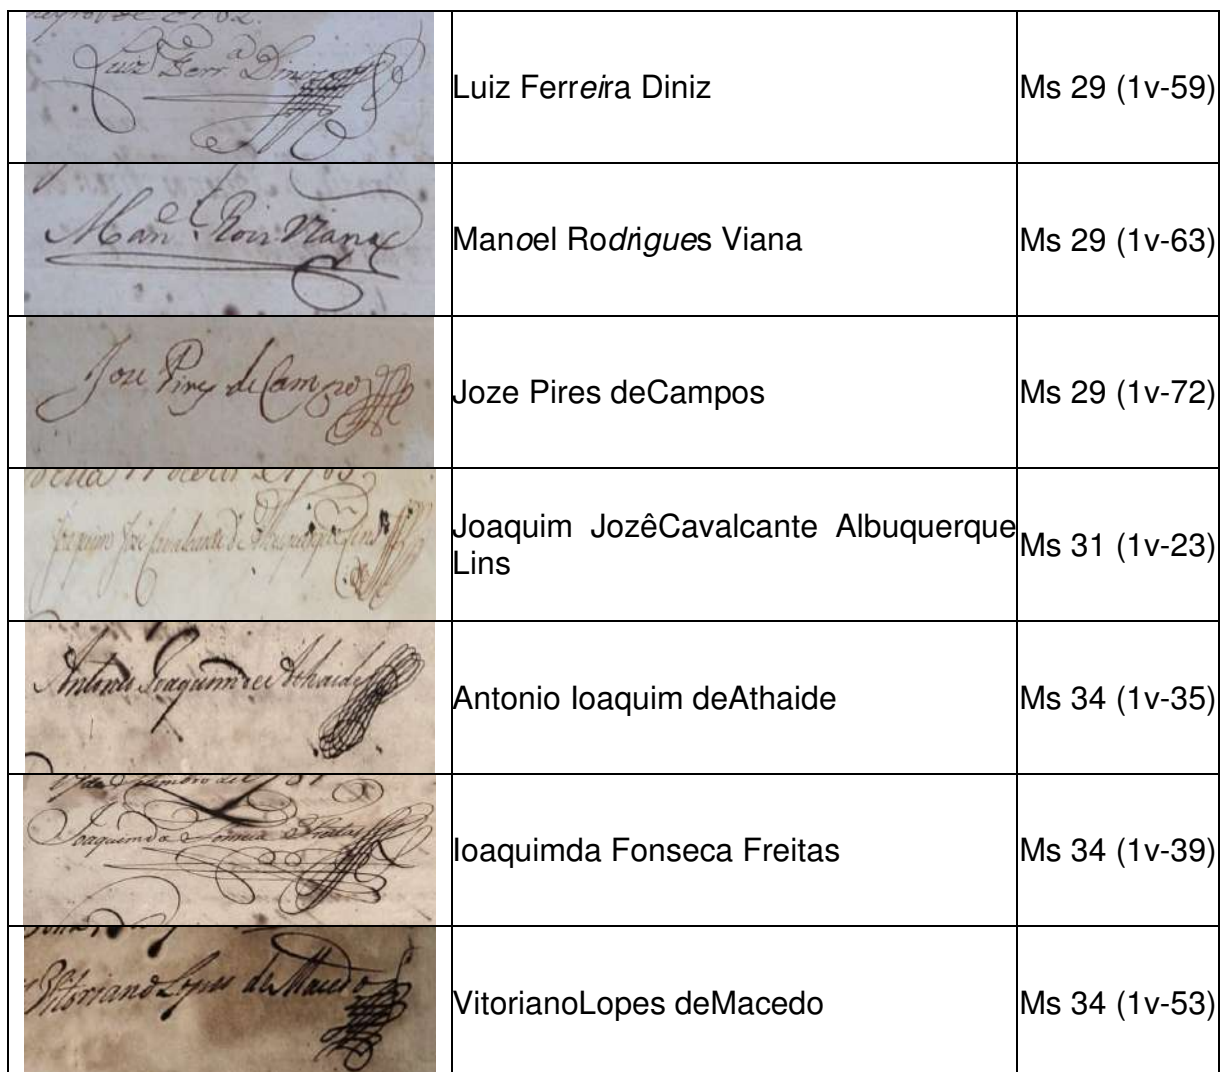 Luiz Ferrª Diniz
Luiz Ferreira Diniz
Ms 29 (1v-59)
Manᵉˡ Roiz Viana
Manoel Rodrigues Viana
Ms 29 (1v-63)
Joze Pires de Campos
Joze Pires deCampos
Ms 29 (1v-72)
Joaquim Jozê Cavalcante de Albuquerque Lins
Joaquim JozêCavalcante Albuquerque
Lins
Ms 31 (1v-23)
Antonio Ioaquim de Athaide
Antonio Ioaquim deAthaide
Ms 34 (1v-35)
Ioaquimda Fonseca Freitas
Ioaquimda Fonseca Freitas
Ms 34 (1v-39)
Vitoriano Lopes de Macedo
VitorianoLopes deMacedo
Ms 34 (1v-53)